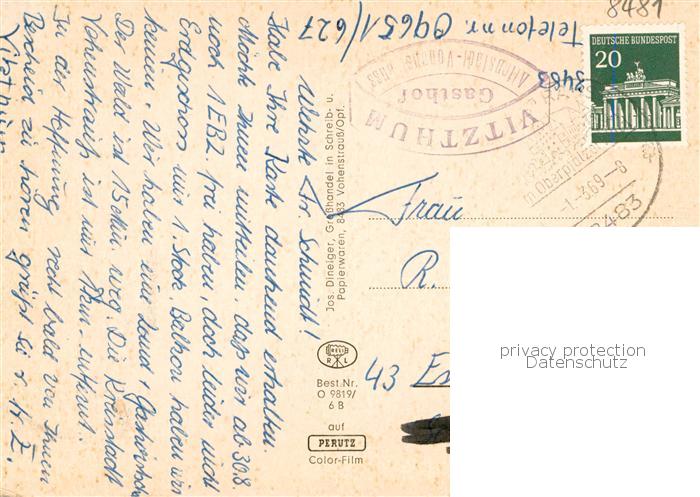 8481
Telefonnr. 09651/627
8483
Gasthof
VITZTHUM
DEUTSCHE BUNDESPOST
20
-1.-3.69--8
8483
Werte Fr Schmidt!
Habe Ihre Karte dankend erhalten.
Möchte Ihnen mitteilen, daß wir ab 30.8.
noch 1 EBZ. frei haben, doch leider nicht
Erdgeschoss nur 1 Stock, Balkon haben wir
keinen. Wir haben eine Land + Gastwirtschaft
Der Wald ist 15 Min. weg. Die Kreisstadt
Vohenstrauß ist nur 1km entfernt.
In der Hoffnung recht bald von Ihnen
Bescheid zu hören grüßt Sie
Vitzthum
Jos. Dineiger, Großhandel in Schreib- u.
Papierwaren, 8483 Vohenstrauß/Opf.
Frau
R.
43
R L
Best.Nr.
O 9819/
6 B
auf
PERUTZ
Color-Film
privacy protection
Datenschutz